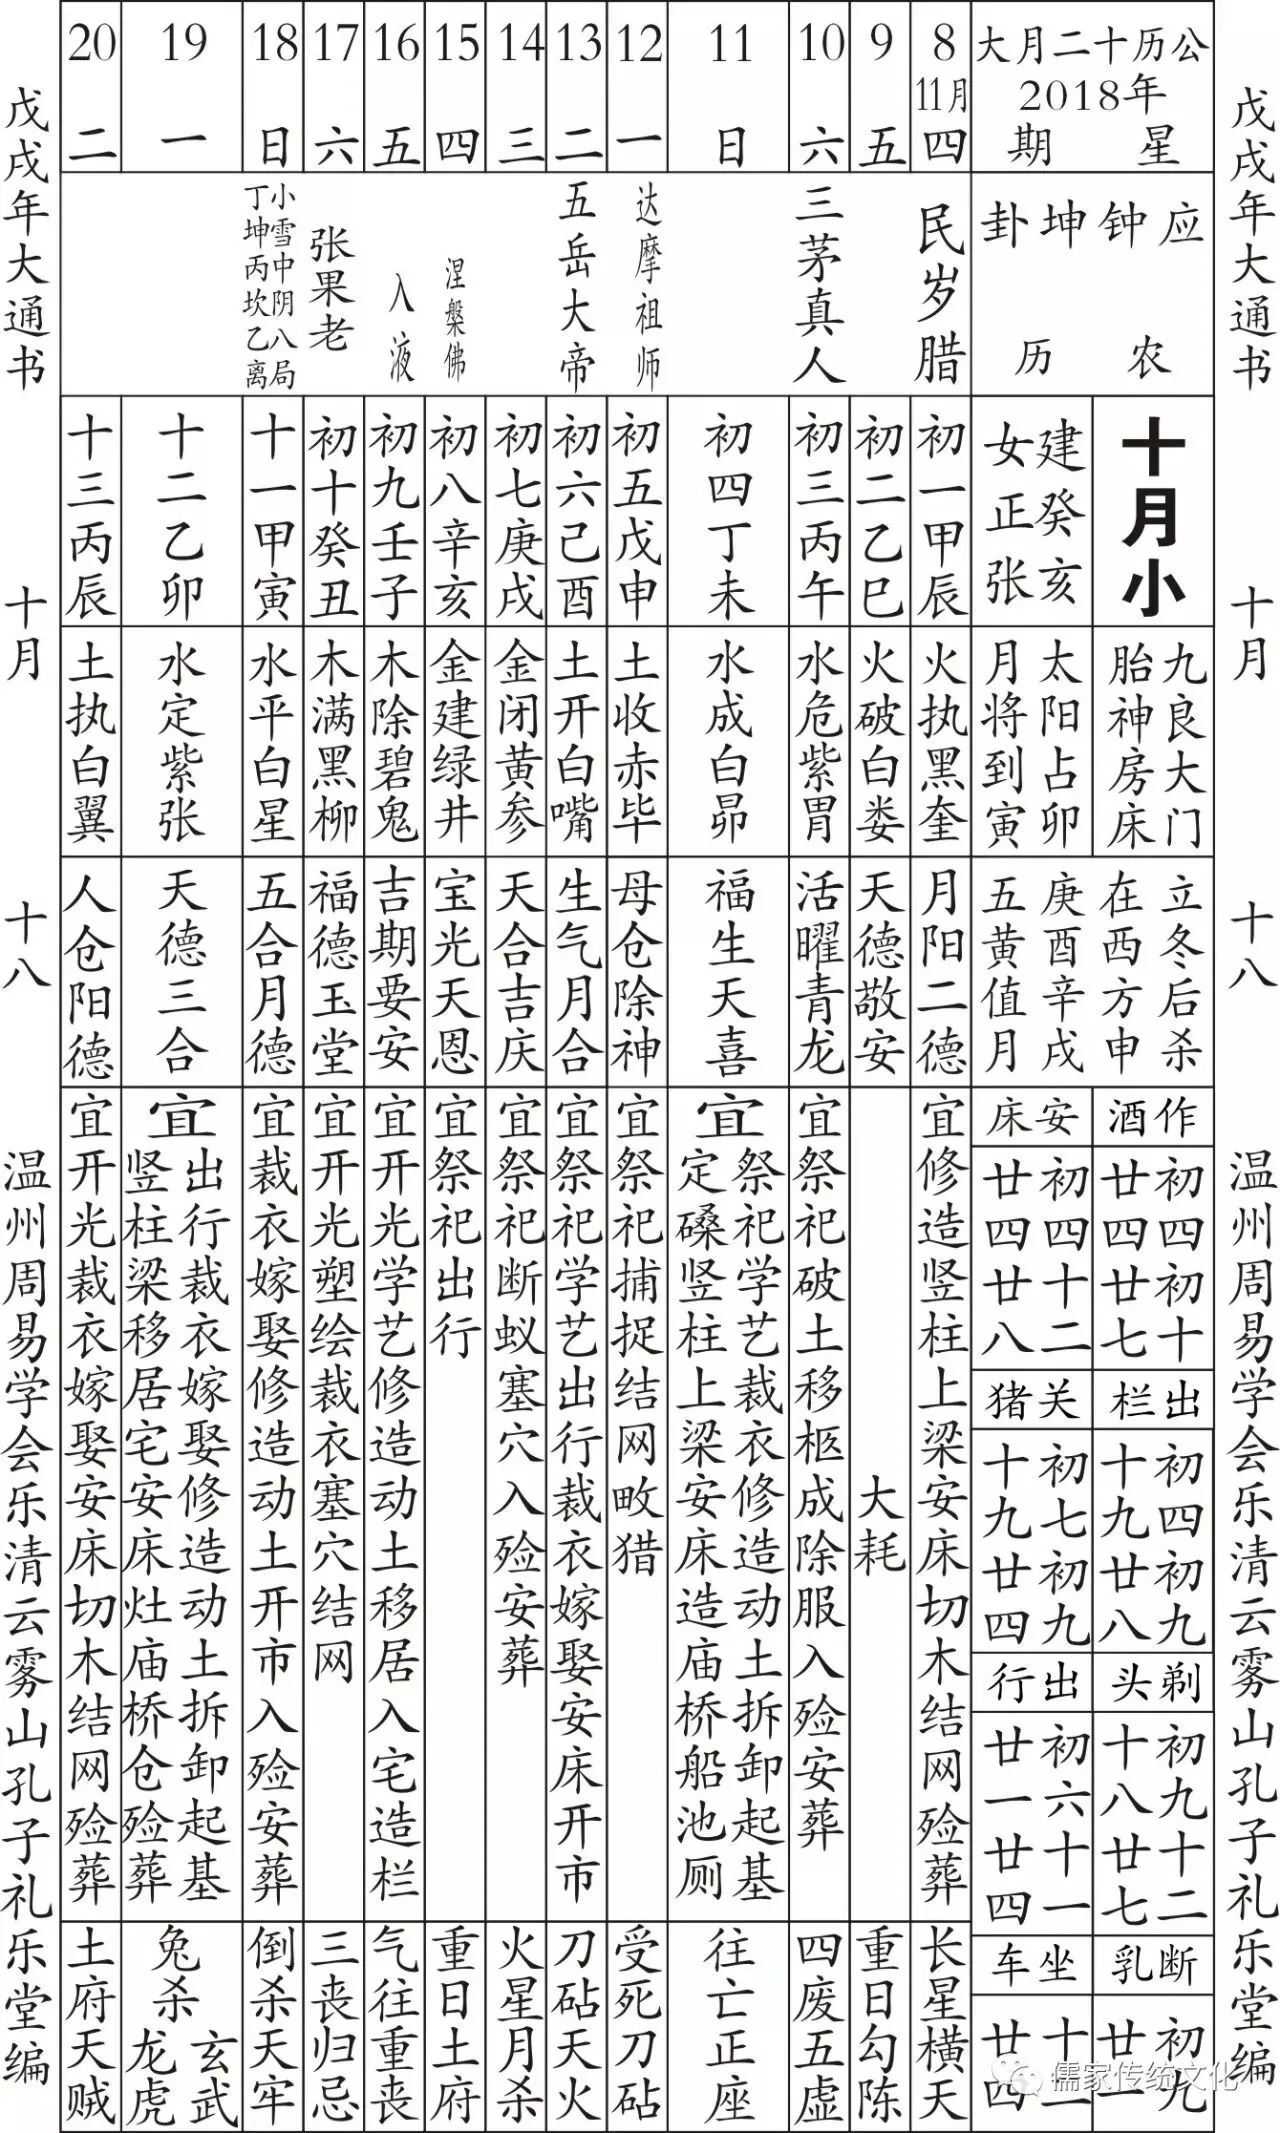 戊戌年大通书
十月
十八
温州周易学会乐清云雾山孔子礼乐堂编
公历十二月大
2018年
星期
应钟坤卦
农历
十月小
建癸亥
女正张
九良大门
胎神房床
太阳占卯
月将到寅
立冬后杀
在西方申
庚酉辛戌
五黄值月
作酒
初四初十
廿四廿七
安床
初四十二
廿四廿八
出栏
初四初九
十九廿八
关猪
初七初九
十九廿四
剃头
初九十二
十八廿七
出行
初六十一
廿一廿四
断乳
初九
廿一
坐车
廿四
8
11月
四
民岁腊
初一甲辰
火执黑奎
月阳二德
宜修造竖柱上梁安床切木结网殓葬
长星横天
9
五
初二乙巳
火破白娄
天德敬安
大耗
重日勾陈
10
六
三茅真人
初三丙午
水危紫胃
活曜青龙
宜祭祀破土移柩成除服入殓安葬
四废五虚
11
日
初四丁未
水成白昴
福生天喜
宜
祭祀学艺裁衣修造动土拆卸起基
定磉竖柱上梁安床造庙桥船池厕
往亡正座
12
一
达摩祖师
初五戊申
土收赤毕
母仓除神
宜祭祀捕捉结网畋猎
受死刀砧
13
二
五岳大帝
初六己酉
土开白嘴
生气月合
宜祭祀学艺出行裁衣嫁娶安床开市
刀砧天火
14
三
初七庚戌
金闭黄参
天合吉庆
宜祭祀断蚁塞穴入殓安葬
火星月杀
15
四
涅槃佛
初八辛亥
金建绿井
宝光天恩
宜祭祀出行
重日土府
16
五
入液
初九壬子
木除碧鬼
吉期要安
宜开光学艺修造动土移居入宅造栏
气往重丧
17
六
张果老
初十癸丑
木满黑柳
福德玉堂
宜开光塑绘裁衣塞穴结网
三丧归忌
18
日
小雪中阴八局
丁坤丙坎乙离
十一甲寅
水平白星
五合月德
宜裁衣嫁娶修造动土开市入殓安葬
倒杀天牢
19
一
十二乙卯
水定紫张
天德三合
宜
出行裁衣嫁娶修造动土拆卸起基
竖柱梁移居宅安床灶庙桥仓殓葬
兔杀
玄武
龙虎
20
二
十三丙辰
土执白翼
人仓阳德
宜开光裁衣嫁娶安床切木结网殓葬
土府天贼
戊戌年大通书
十月
十八
温州周易学会乐清云雾山孔子礼乐堂编
儒家传统文化